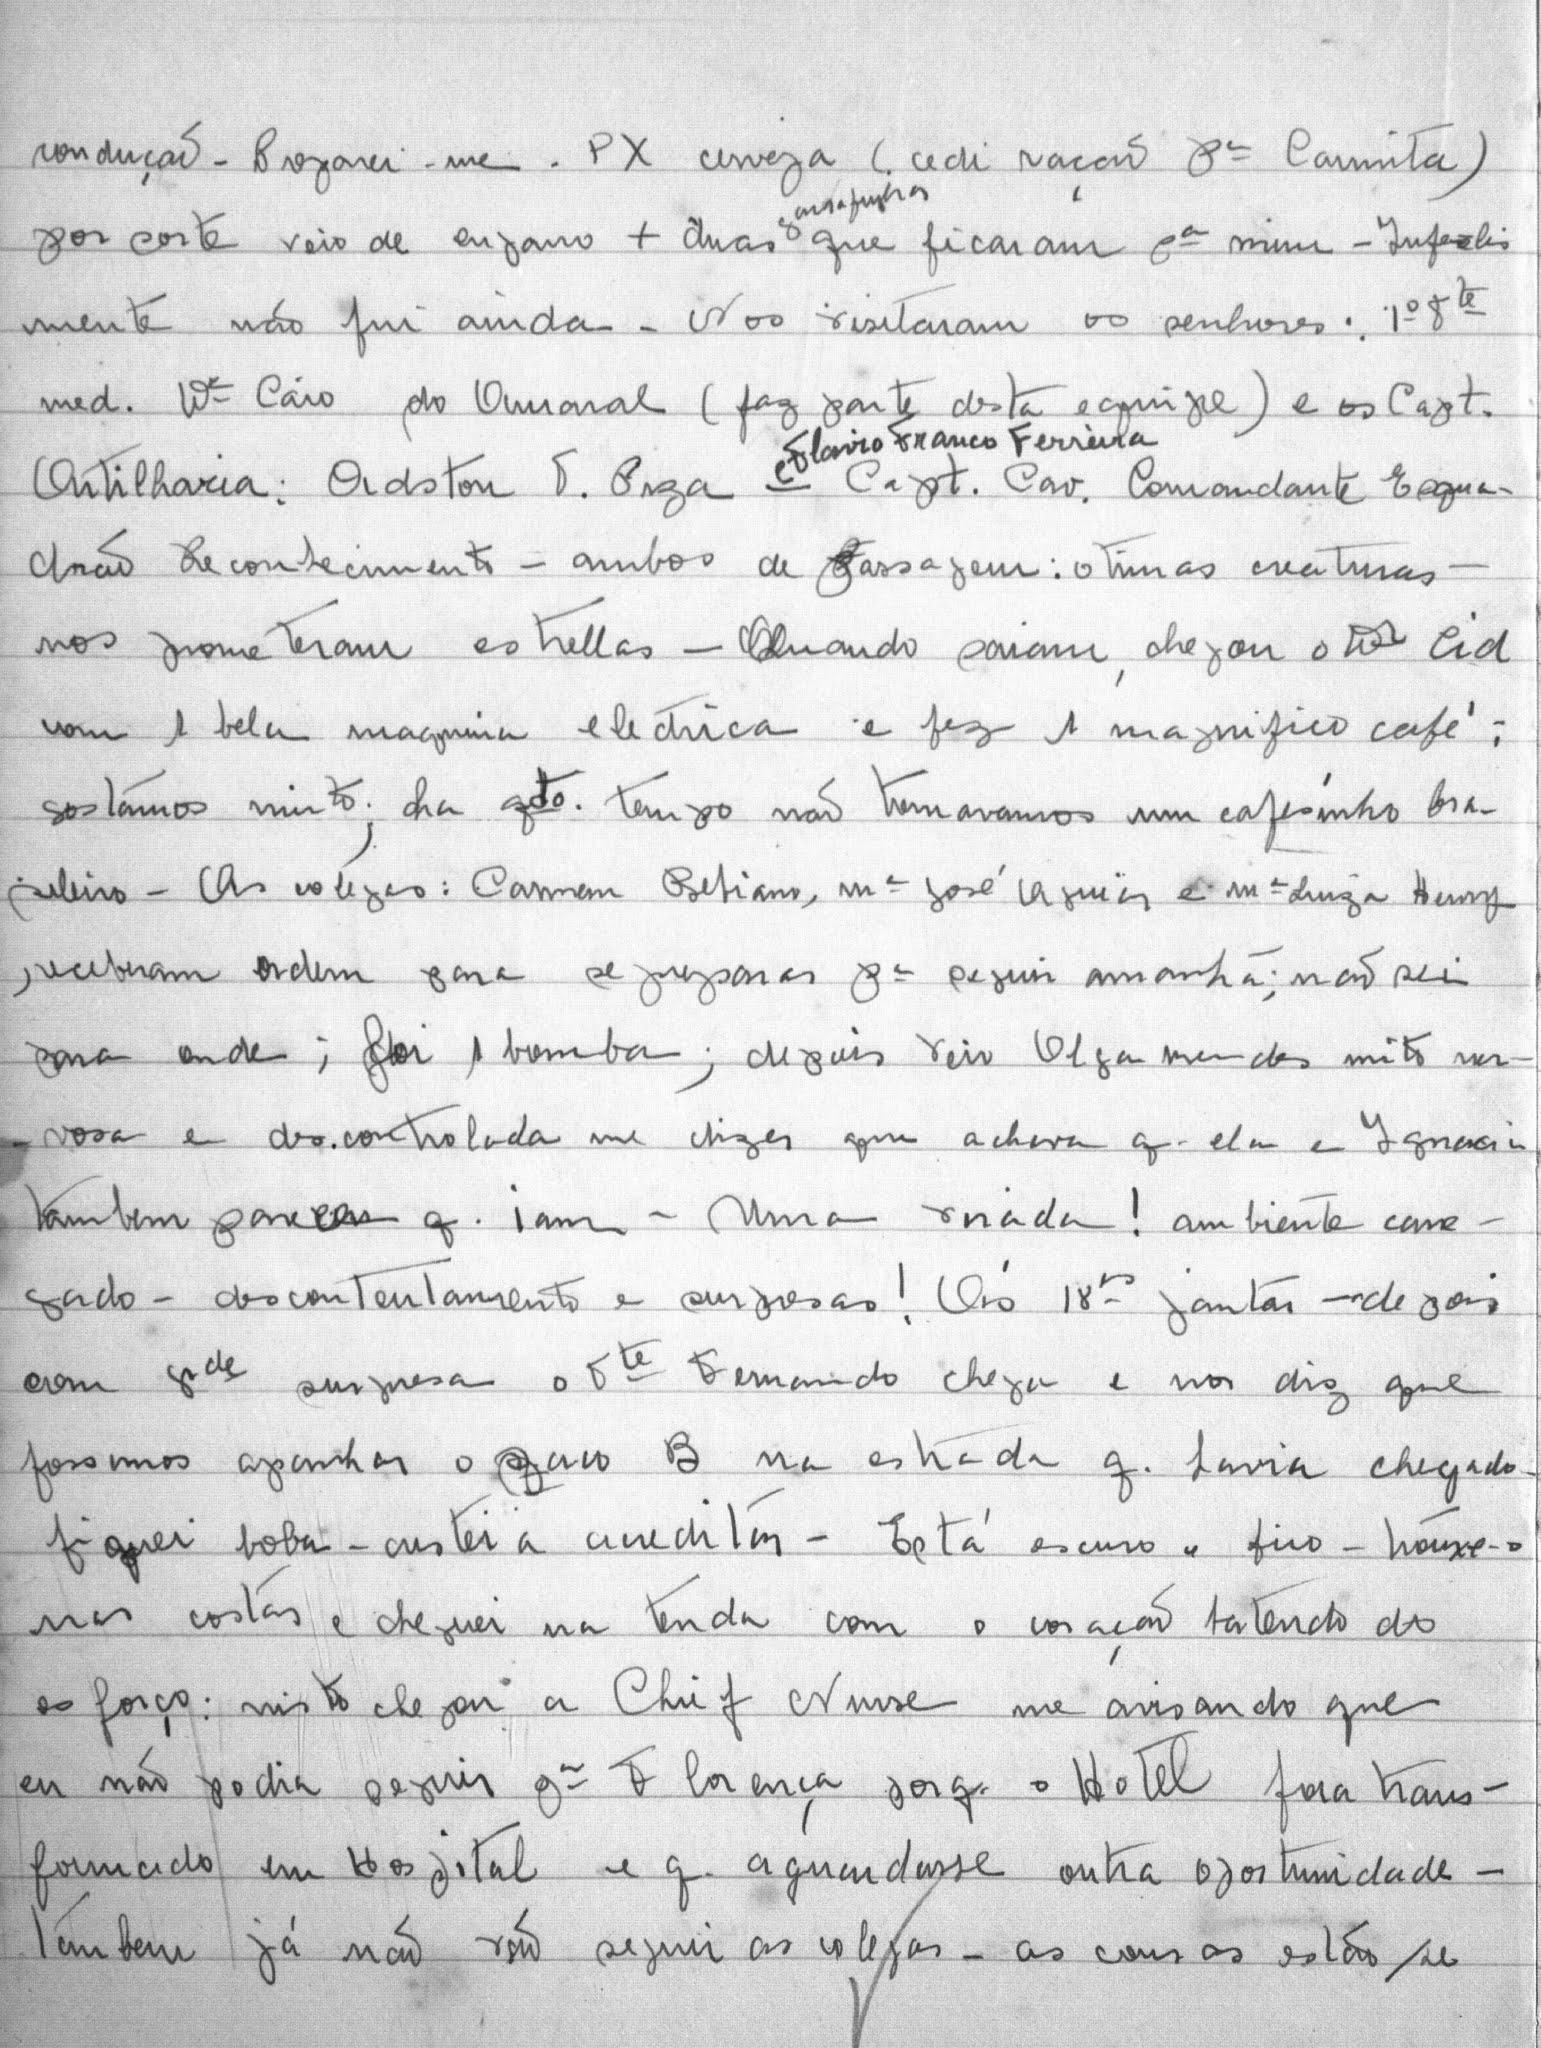 condução - . PX cerveja (cedi ração pª Carmita)
garrafinhas
por sorte veio de engano + duas que ficaram pª mim - Infelis
mente não fui ainda - Nos visitaram os senhores: 1º Tte
med. Dr Caio do Amaral (faz parte desta equipe) e os Capt.
e Flavio Franco Ferreira
Artilharia: F. Capt. Cav. Comandante Esqua-
drão Reconhecimento - ambos de Passagem: otimas creaturas -
nos prometeram estrellas - Quando sairam, chegou o Dr Cid
com 1 bela maquina electrica e fez 1 magnifico café;
gostámos muito; ha qdto. tempo não tomavamos um cafésinho bra-
sileiro - As colegas: Carmem Bebiano, Mª José Aguiar e Mª Luiza Henry
, receberam ordem para se preparar pª seguir amanhã; não sei
para onde; foi 1 bomba; depois veio Olga Mendes mito ner-
- vosa e descontrolada me dizer que achava q. ela e Ignacia
tambem q. iam - Uma ! ambiente carre-
gado - descontentamento e surpresas! Ás 18hs jantar - depois
com gde surpresa o Tte Fernando chega e nos diz que
fossemos apanhar o saco B na estrada q. havia chegado -
fiquei boba - custei a acreditar - Está escuro e frio - trouxe-o
nas costas e cheguei na tenda com o coração batendo do
esforço: nisto chegou a Chief Nurse me avisando que
eu não podia seguir pª Florença porq. o Hotel fora trans-
formado em Hospital e q. aguardasse outra oportunidade -
Tambem já não vão seguir as colegas - as cousas estão se